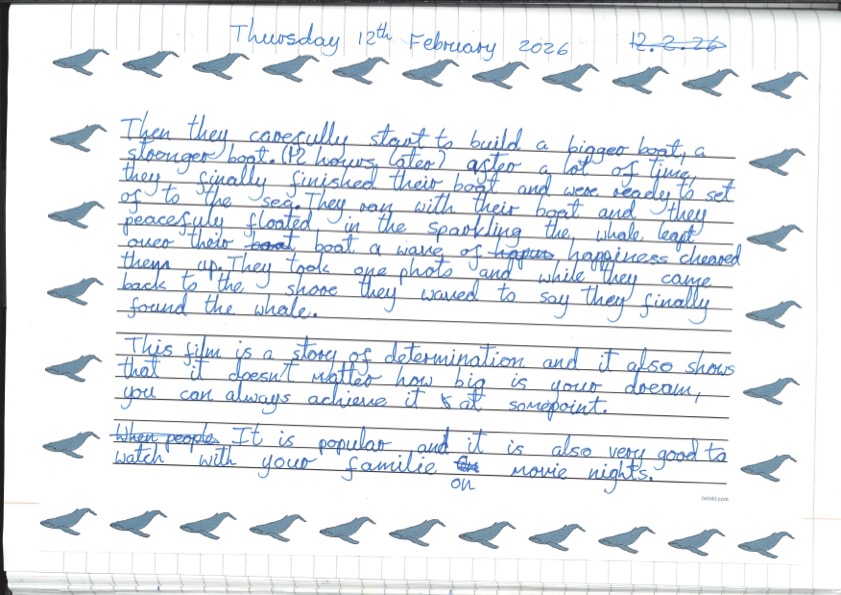 Thursday 12th February 2026 12.2.26
Then they carefully start to build a bigger boat, a
stronger boat. (12 hours later) after a lot of time,
they finally finished their boat and were ready to set
of to the sea. They ran with their boat and they
peacefuly floated in the sparkling the whale leapt
over their boat boat a wave of happiness cheared
them up. They took one photo and while they came
back to the shore they waved to say they finally
found the whale.
This film is a story of determination and it also shows
that it doesn't matter how big is your dream,
you can always achieve it at somepoint.
When people It is popular and it is also very good to
watch with your familie movie nights.
on
twinkl.com